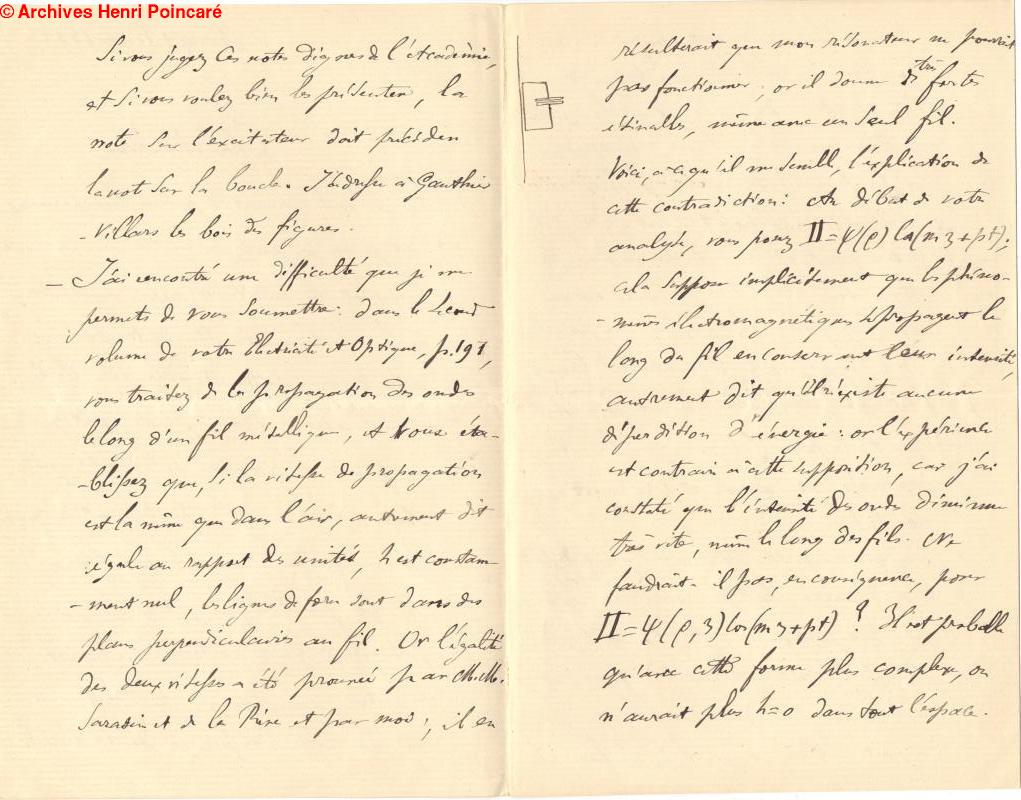 © Archives Henri Poincaré
Si vous jugez ces notes dignes de l'Académie,
et si vous voulez bien les présenter, la
note sur l'excitateur doit précéder
la not sur la boucle. J'adresse à Gauthier
-Villars les bois des figures.
— J'ai rencontré une difficulté que je me
permets de vous soumettre: dans le second
volume de votre Electricité et Optique, p. 191,
vous traitez de la propagation des ondes
le long d'un fil métallique, et vous éta-
-blissez que, si la vitesse de propagation
est la même que dans l'air, autrement dit
égale au rapport des unités, h est constam-
-ment nul, les lignes de force sont dans des
plans perpendiculaires au fil. Or l'égalité
des deux vitesses a été prouvée par M.M.
Sarasin et de la Rive et par moi; il en
résulterait que mon résonateur ne pourrait
pas fonctionner; or il donne de très fortes
étincelles, même avec un seul fil.
Voici, à ce qu'il me semble, l'explication de
cette contradiction: Au début de votre
analyse, vous posez Π=ψ(ρ) cos(mz+pt);
cela suppose implicitement que les phéno-
-mènes électromagnétiques se propagent le
long du fil en conservant leur intensité,
autrement dit qu'il n'existe aucune
déperdition d'énergie: or l'expérience
est contraire à cette supposition, car j'ai
constaté que l'intensité des ondes diminue
très vite, même le long des fils. Ne
faudrait-il pas, en conséquence, poser
Π=ψ(ρ,z) cos(mz+pt)? Il est probable
qu'avec cette forme plus complexe, on
n'aurait plus h=0 dans tout l'espace.